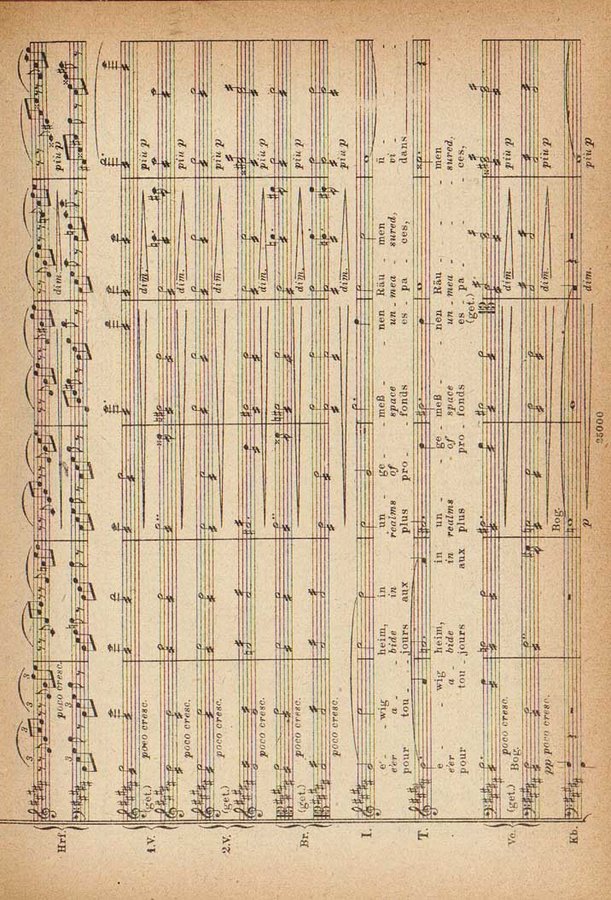 Hrf. 3 3 3 3
poco cresc. dim. più p
1.V. (get.) poco cresc. dim. più p
poco cresc. dim. più p
2.V. (get.) poco cresc. dim. più p
poco cresc. dim. più p
Br. (get.) poco cresc. dim. più p
poco cresc. dim. più p
I.
e - wig heim, in un - ge - meß - nen Räu - men ü -
e'er a - bide in realms of space un - mea - sured, vi -
pour tou - jours aux plus pro - fonds es - pa - ces, dans
T.
e - wig heim, in un - ge - meß - nen Räu - men
e'er a - bide in realms of space un - mea - sured,
pour tou - jours aux plus pro - fonds es - pa - ces,
(get.)
Vc. (get.) poco cresc. dim più p
Bog.
pp poco cresc. dim. più p
Bog.
Kb. p dim. più p
25000